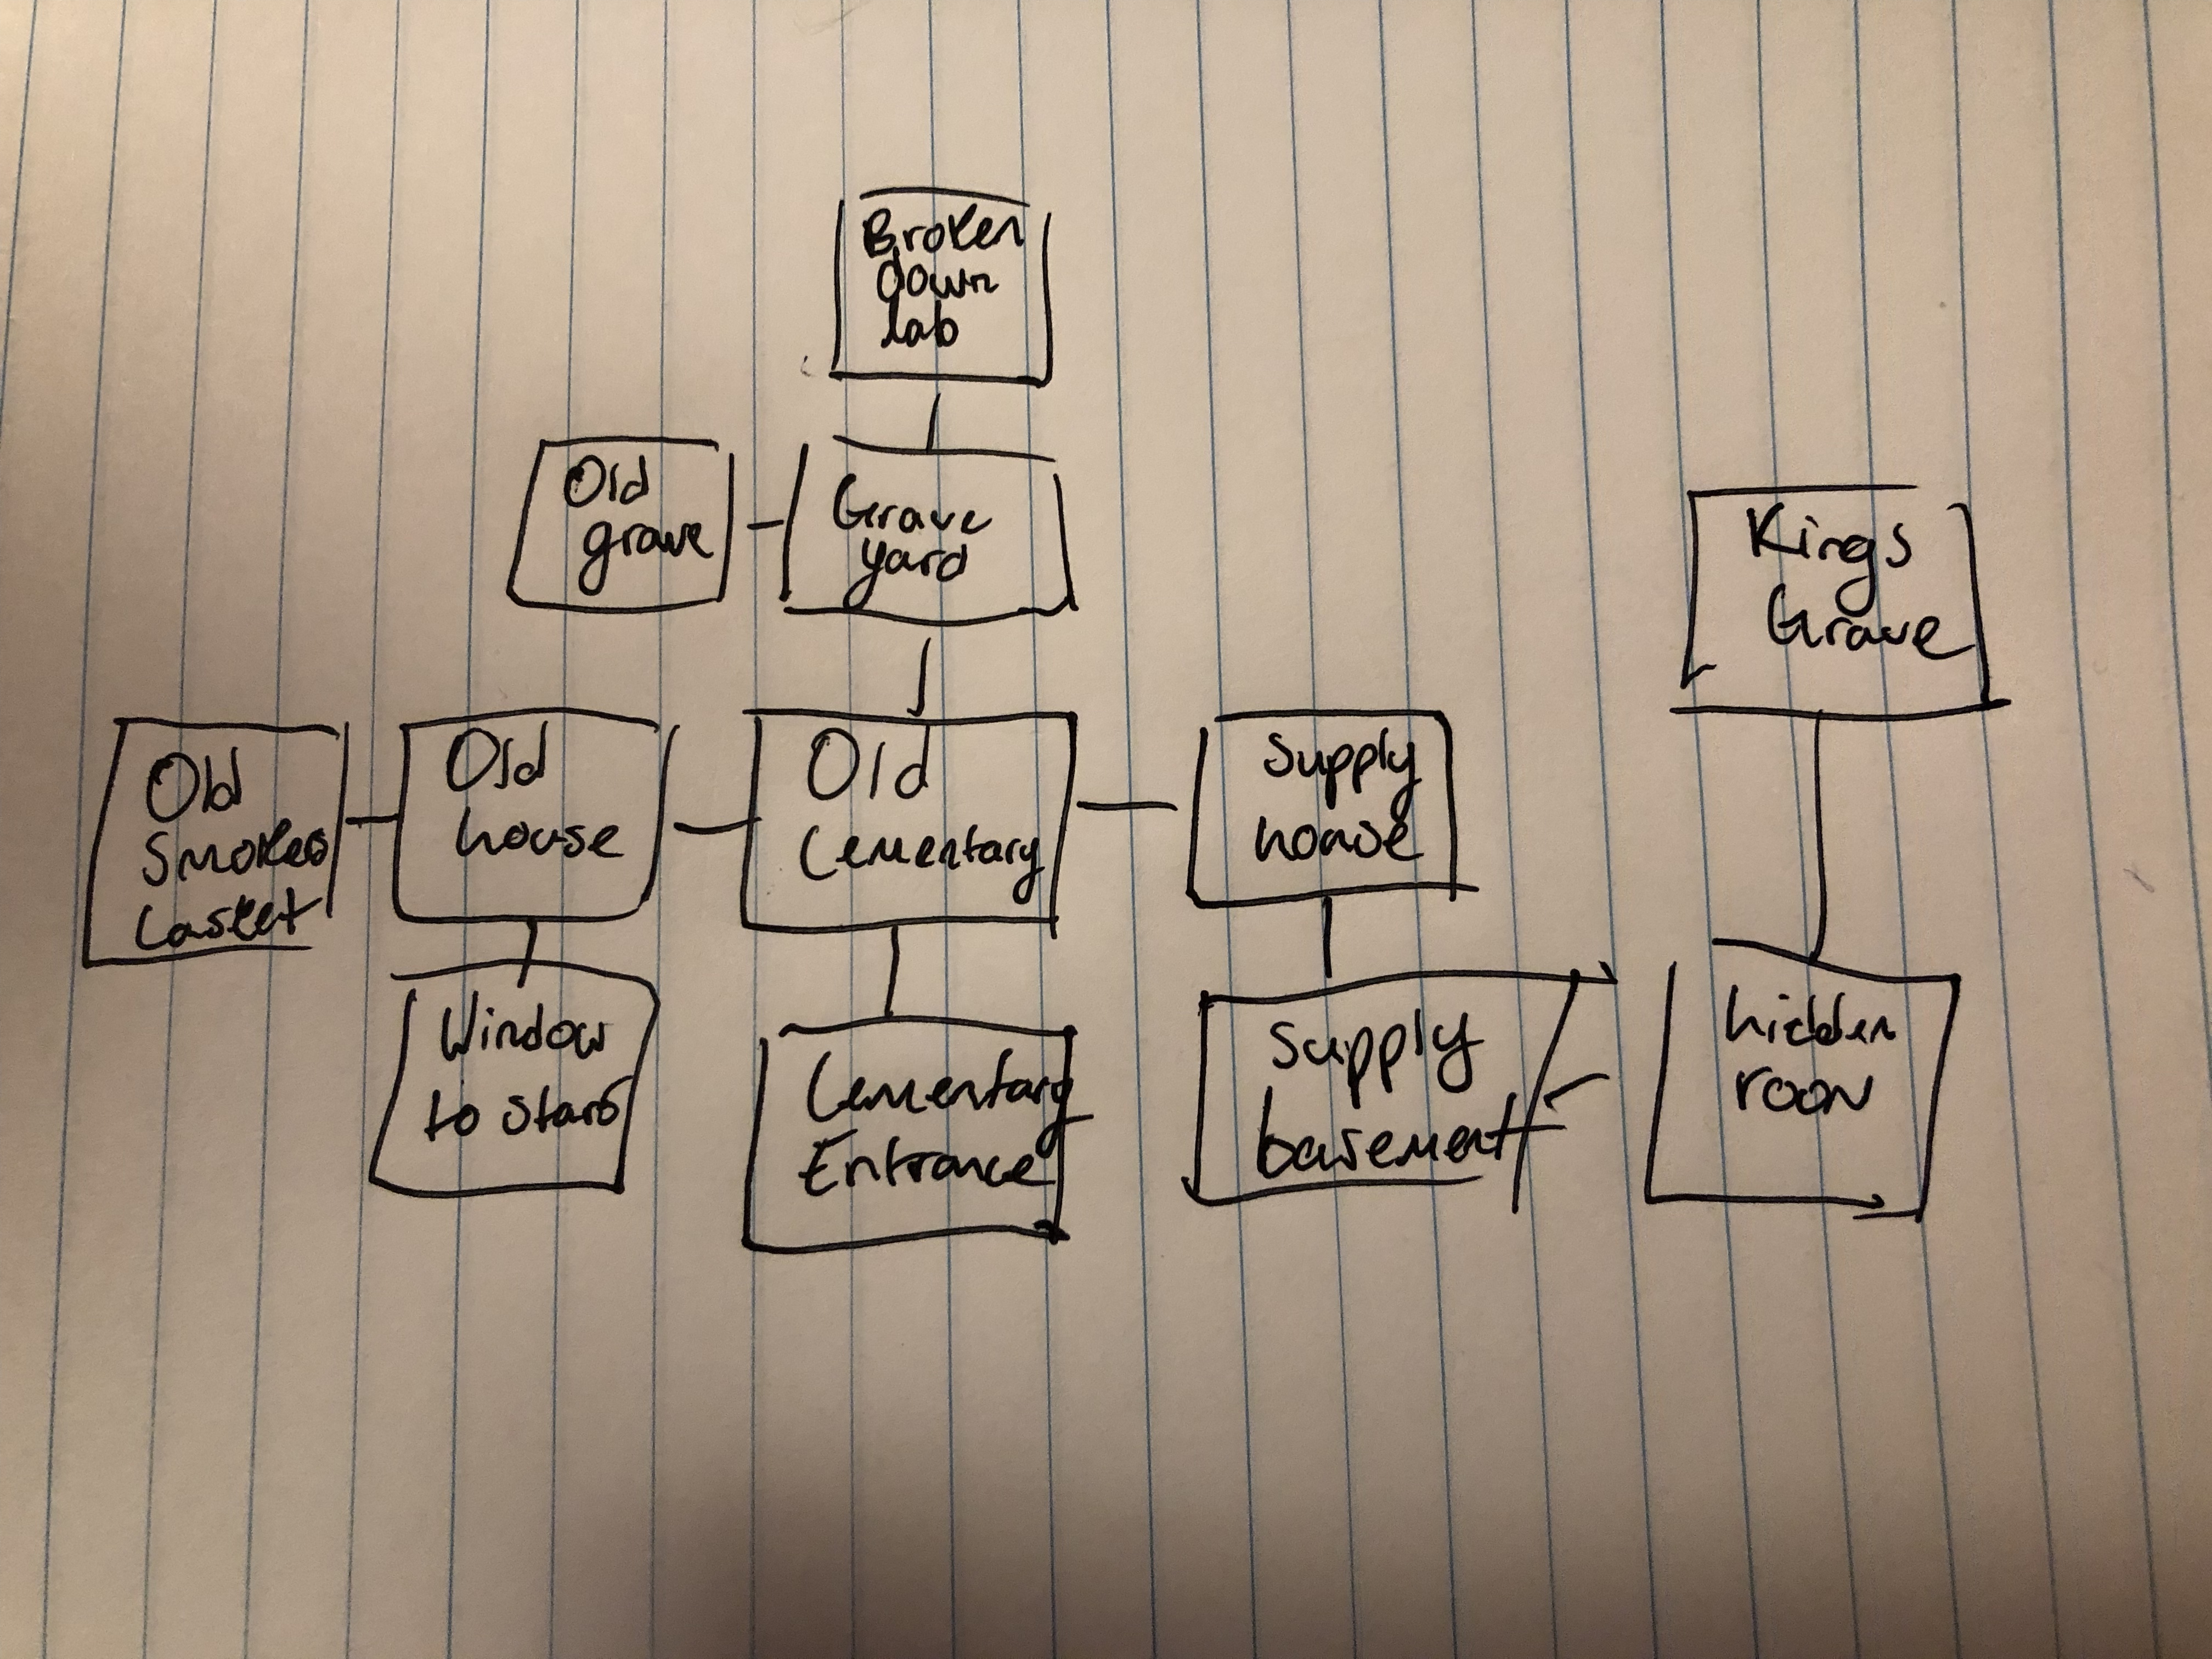 Broken
down
lab
Old
grave
Grave
yard
Kings
Grave
Old
Smokes
Casket
Old
house
Old
Cementary
Supply
house
Window
to stars
Cementary
Entrance
Supply
basement
hidden
room